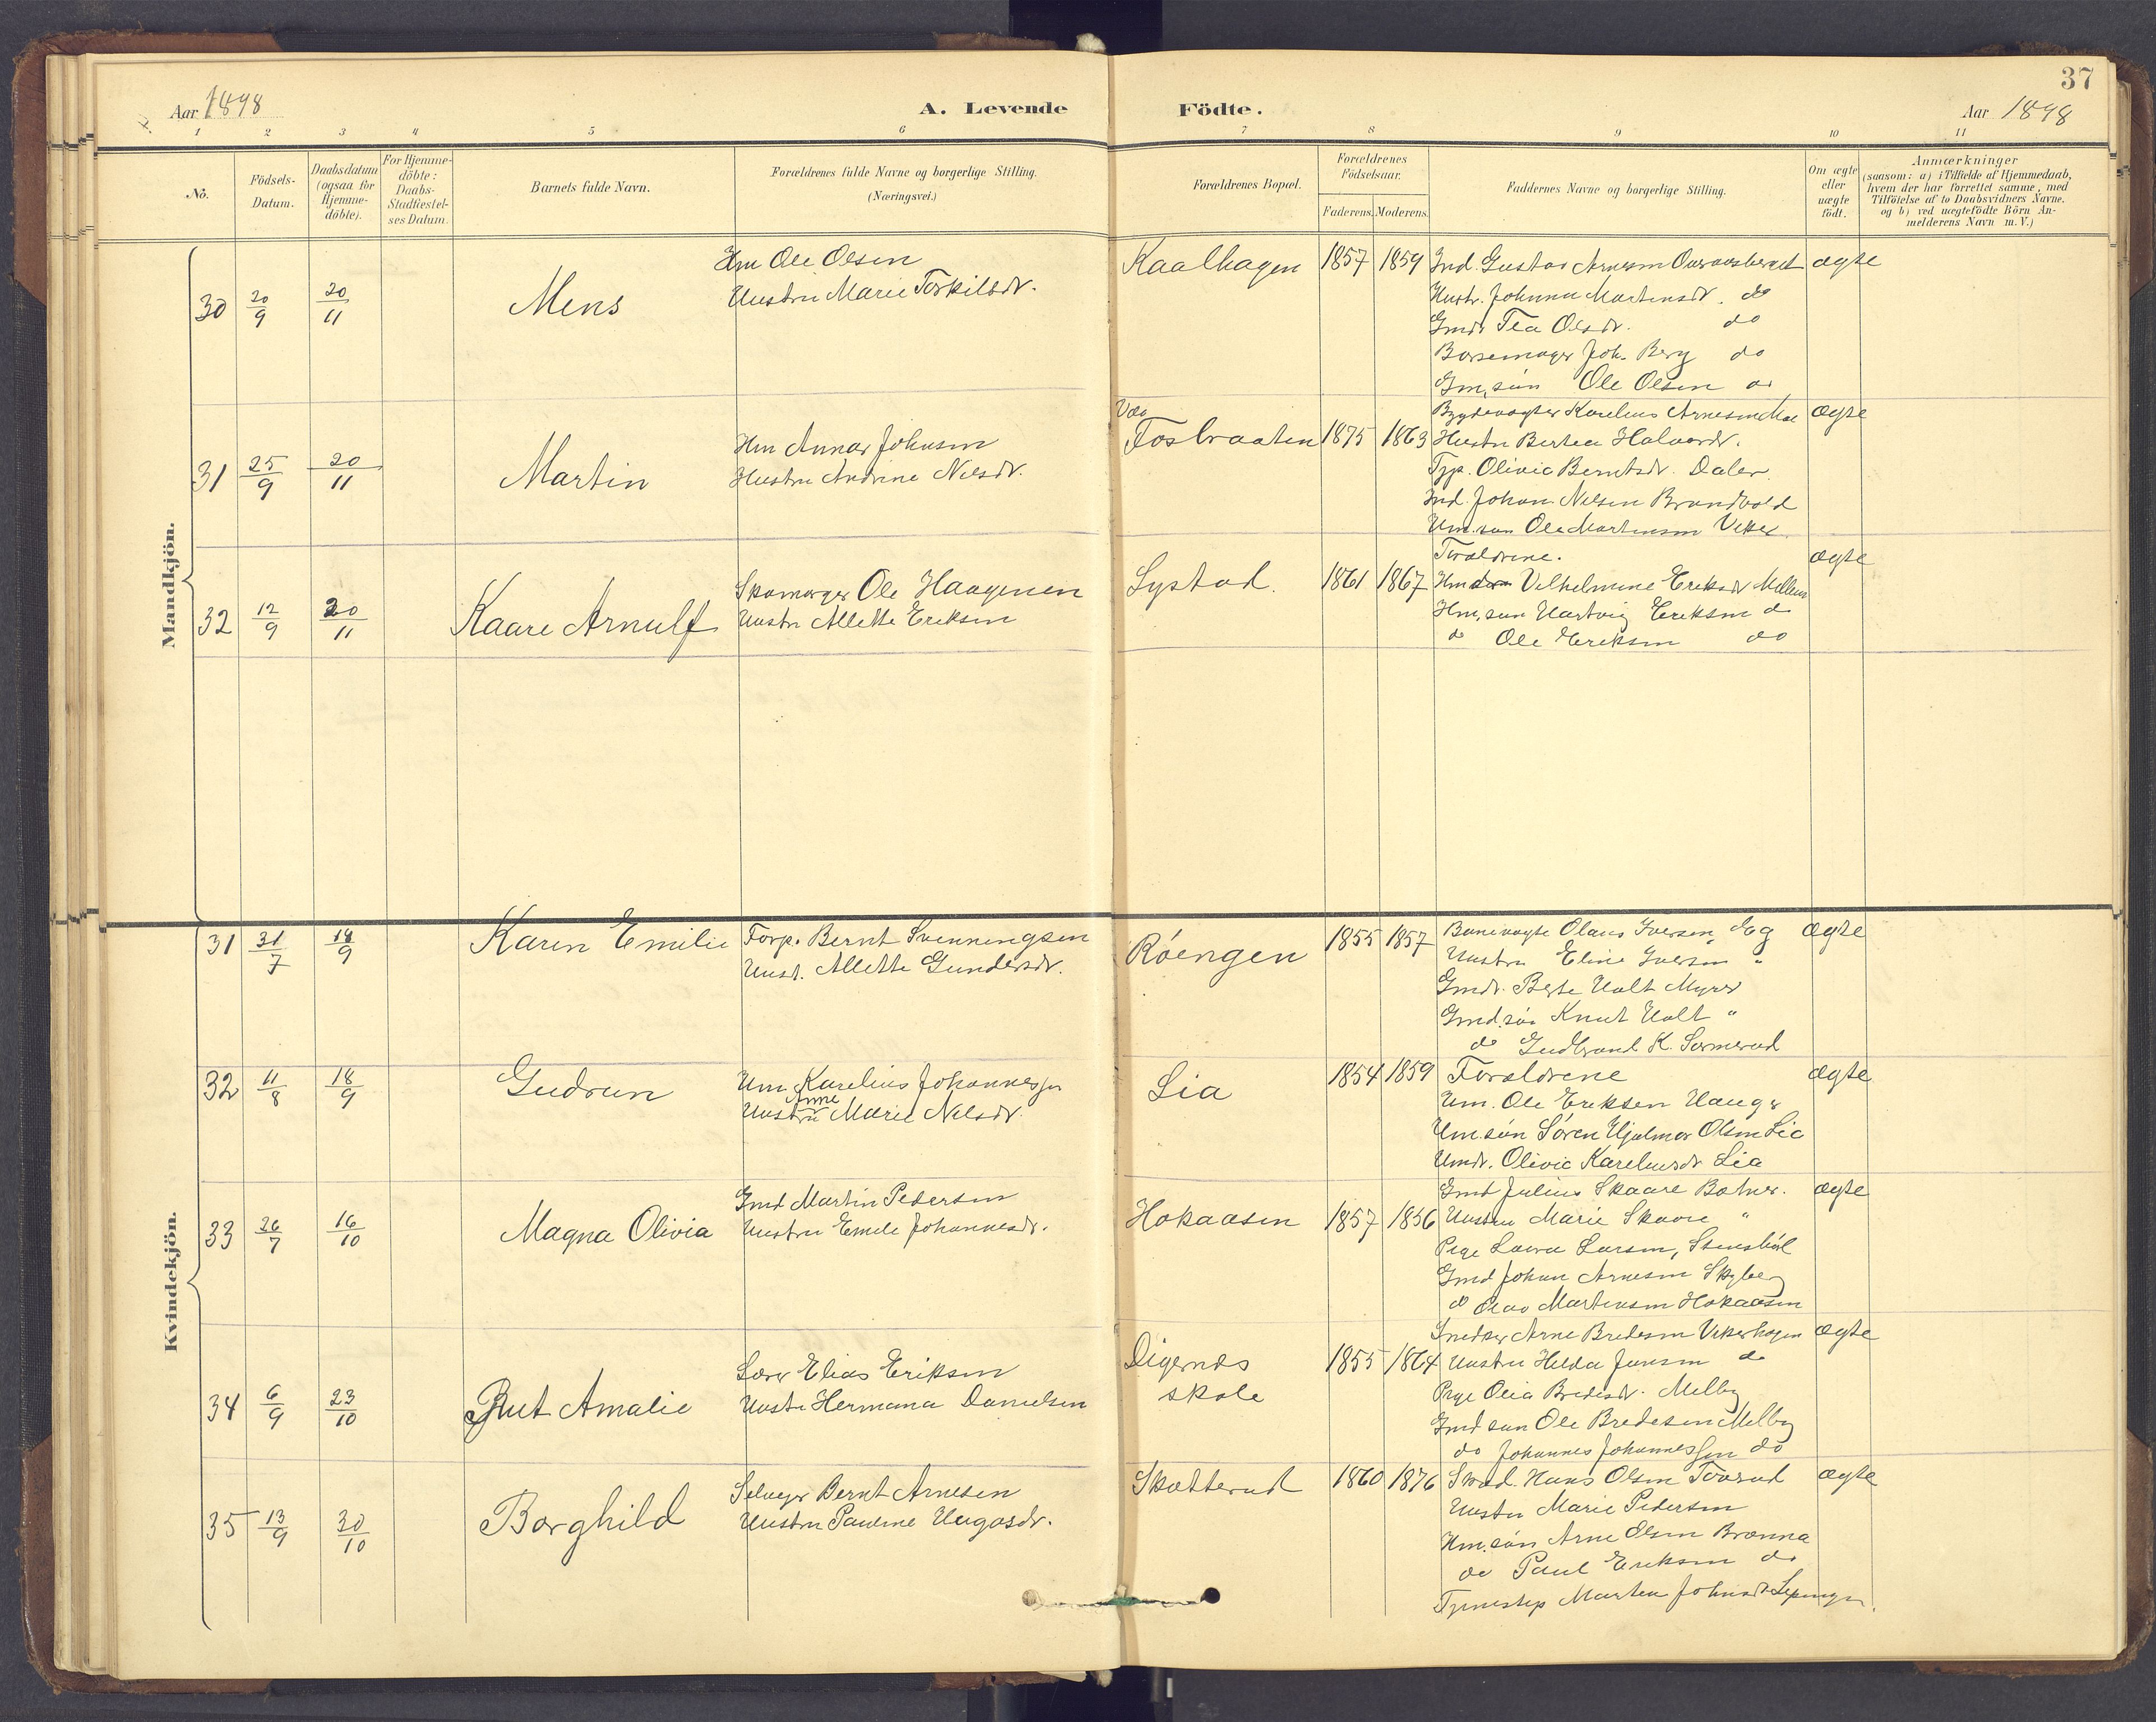 37
Aar 1898
A. Levende Födte.
Aar 1898
1 2 3 4 5 6 7 8 9 10 11
No.
Födsels-Datum.
Daabsdatum (ogsaa for Hjemme-döbte).
For Hjemme-döbte: Daabs-Stadfæstel-ses Datum.
Barnets fulde Navn.
Forældrenes fulde Navne og borgerlige Stilling.
(Næringsvei.)
Forældrenes Bopæl.
Forældrenes Födselsaar.
Faderens. Moderens.
Faddernes Navne og borgerlige Stilling.
Om ægte eller uægte födt.
Anmærkninger
(saasom: a) i Tilfælde af Hjemmedaab,
hvem der har forrettet samme, med
Tilföielse af to Daabsvidners Navne.
og b) ved uægtefödte Börn An-
melderens Navn m.V.)
Mandkjön.
30 20/9 20/11 Mens
Hm Ole Olsen
Hustru Marie Torkildsdr.
Kaalhagen 1857 1859
Ind. Gustav Arnesen
ægte
Hustr. Johanna Martinsdr. do
Gmdr Tea Olsdr. do
Børsemager Joh. Berg do
Gm.søn Ole Olsen do
31 25/9 20/11 Martin
Hm Annar Johnsen
Hustru Andrine Nilsdr.
Fosbraaten 1875 1863
Bygdevogter Karelius Arnesen Moe
ægte
Hustru Berthea Halvordr.
Tjp. Olivia Berntsdr. Daler
Ind. Johan Nilsen Brandvold
Hm.søn Ole Martinsen
32 12/9 20/11 Kaare Arnulf
Skomager Ole Haagensen
Hustru Allette Eriksen
Systad. 1861 1867
Forældrene.
ægte
Vilhelmine Eriksdr
Hm.søn Hartvig Eriksen do
do Ole Eriksen do
Kvindekjön.
31 31/7 18/9 Karen Emilie
Torp. Bernt Svenningsen
Hust. Allette Gundersdr.
Röengen 1855 1857
Banevogte Olaus Iversen Eg
ægte
Hustru Eline Iversen "
Gmdr. Berte Holt Myrer
Gmd.søn Knut Holt "
do Gudbrand K. Sormerud
32 11/8 18/9 Gudrun
Hm. Karelius Johannessen
Hustru Anne Marie Nilsdr.
Lia 1854 1859
Forældrene
ægte
Hm. Ole Eriksen Hauger
Hm.søn Søren Hjalmar Olsen Lia
Hmdr. Olivia Kareliusdr Lia
33 26/7 16/10 Magna Olivia
Gmd Martin Pedersen
Hustru Emele Johannesdr.
Hokaasen 1857 1856
Gmd Julius Skaare Botner.
ægte
Hustru Marie Skaare "
Pige Laura Larsen, Stensböl
Gmd Johan Arnesen Skyberg
do Olav Martinsen Hokaasen
34 6/9 23/10 Rut Amalie
Lærer Elias Eriksen
Hustr Hermana Danielsen
Digernes skole 1855 1864
Snedker Arne Bredesen Vekerhagen
ægte
Hustru Helda Jensen do
Pige Olia Bredesdr. Melby
Gmd søn Ole Bredesen Melby
do Johannes Johannessen do
35 13/9 30/10 Borghild
Selveger Bernt Arnesen
Hustru Pauline Hagosdr.
Skotterud 1860 1876
Skræd. Hans Olsen Torrud
ægte
Hustru Marie Pedersen
Hm.søn Arne Olsen Brænna
do Paul Eriksen do
Tjenestep Marten Johnsdr